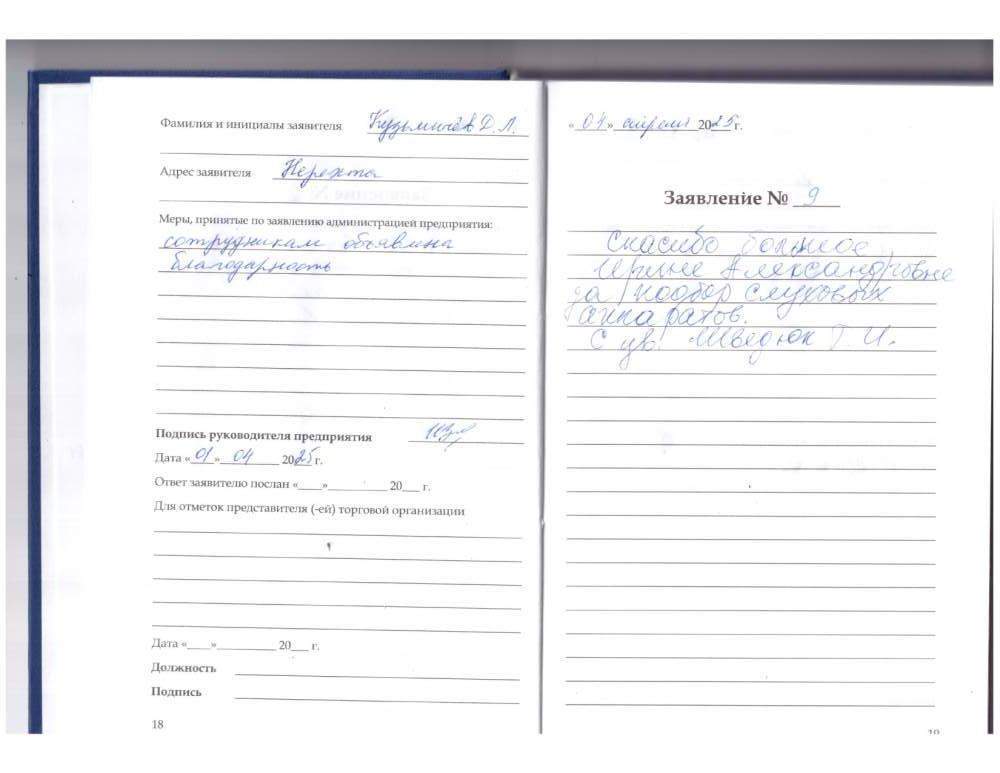 Фамилия и инициалы заявителя Кузьмичёв Д. Л.
Адрес заявителя Нерехта
Меры, принятые по заявлению администрацией предприятия:
сотрудникам объявлена
благодарность
Подпись руководителя предприятия
Дата «01» 04 2025 г.
Ответ заявителю послан «___»__________ 20___ г.
Для отметок представителя (-ей) торговой организации
Дата «___»__________ 20___ г.
Должность
Подпись
18
«04» апреля 2025г.
Заявление № 9
Спасибо большое
Ирине Александровне
за подбор слуховых
аппаратов.
С ув. Шведюк Г И.
19